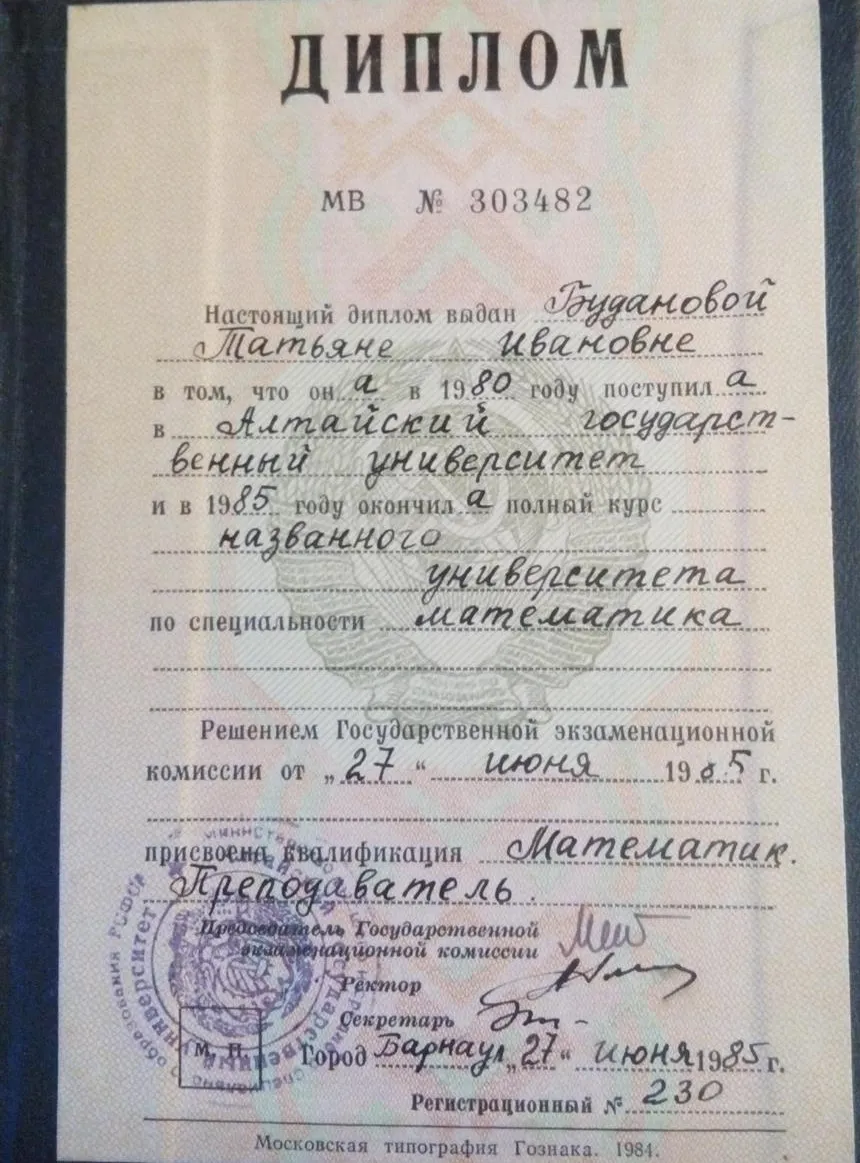 ДИПЛОМ
МВ № 303482
Настоящий диплом выдан Будановой
Татьяне Ивановне
в том, что он а в 1980 году поступил а
в Алтайский государст-
венный университет
и в 1985 году окончил а полный курс
названного
университета
по специальности математика
Решением Государственной экзаменационной
комиссии от „27“ июня 1985 г.
присвоена квалификация Математик.
Преподаватель.
Председатель Государственной
экзаменационной комиссии
Ректор
Секретарь
М. П.
Город Барнаул „27“ июня 1985 г.
Регистрационный № 230
Московская типография Гознака. 1984.